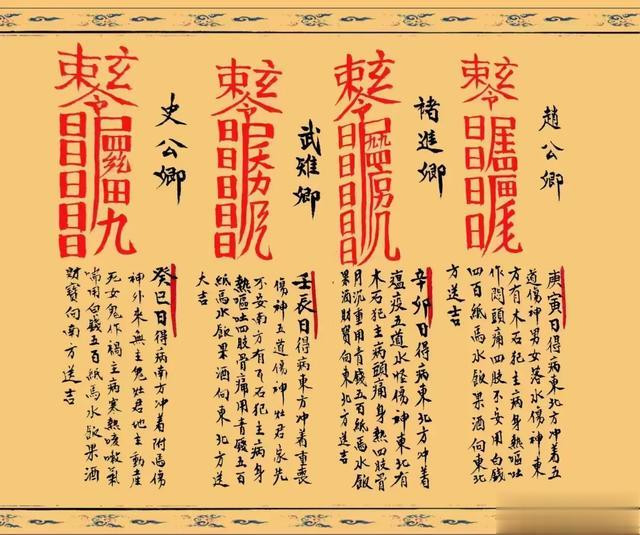 趙公卿
庚寅日得病東北方冲着五
道傷神男女落水傷神東
方有木石犯主病身熱嘔吐
作悶頭痛四肢不安用白錢
四百紙馬水飯果酒向東北
方送吉
諸進卿
辛卯日得病東北方冲着
瘟疫五道水怪傷神東北有
木石犯主病頭痛身熱四肢骨
月沉重用青錢五百紙馬水飯
果酒財寶向東北方送吉
武雉卿
壬辰日得病東方冲着重喪
傷神五道傷神灶君家先
不安南方有不石犯主病身
熱嘔吐四肢骨痛用黃錢五百
紙馬水飯果酒向東北方送
大吉
史公卿
癸巳日得病南方冲着附馬傷
神外來無主鬼灶君地主動產
死女鬼作禍主病寒熱咳嗽氣
喘用白錢五百紙馬水飯果酒
財寶向南方送吉